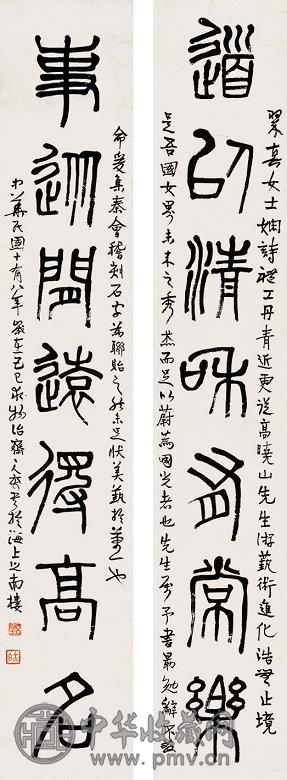 道以清和有常樂
翠真女士嫻詩禮工丹青近更從高曉山先生游藝術進化浩無止境
是吾國女界未來之秀杰而足以蔚為國光者也先生屬予書最勉辭不獲
事閒遠得高名
命爰集秦會稽刻石字為聯貽之然未足狀美藝於萬一也
中華民國十有八年歲在己巳於海上之南樓
中华收藏网
www.pmv.cn